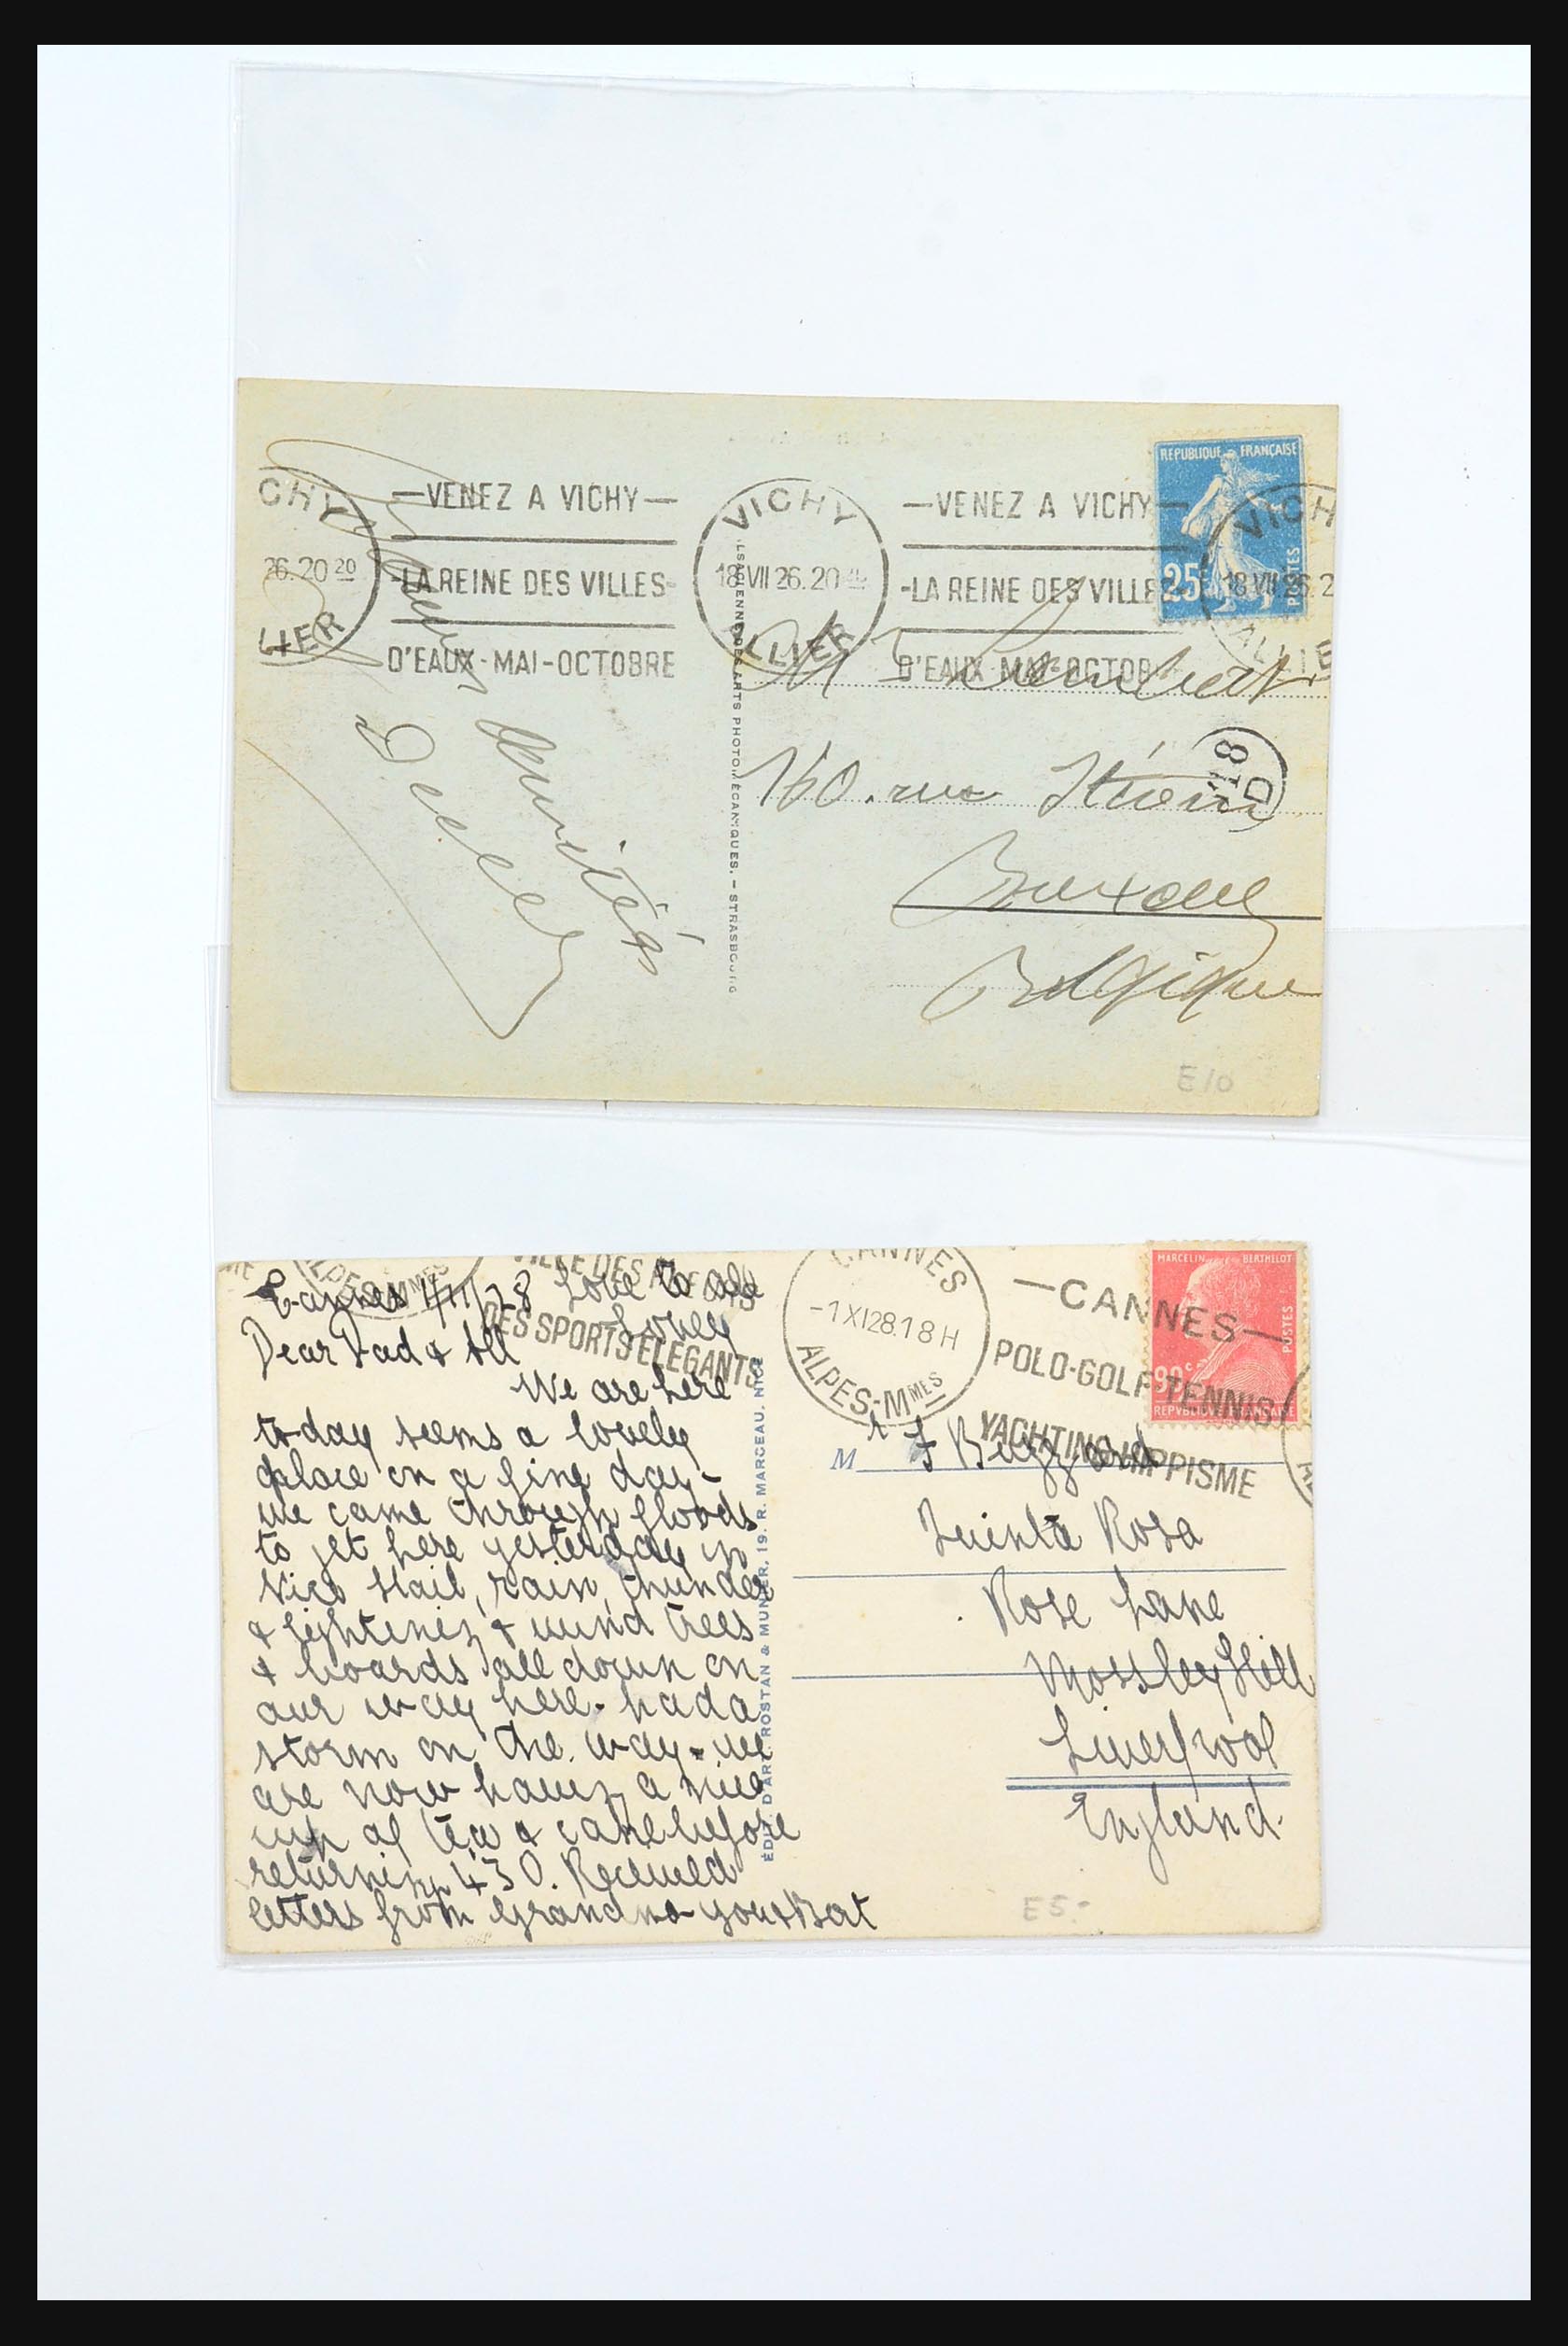 CHY
26.20 20
LIER
—VENEZ A VICHY—
-LA REINE DES VILLES-
D'EAUX-MAI-OCTOBRE
VICHY
18 VII 26.20
ALLIER
—VENEZ A VICHY—
-LA REINE DES VILLE
D'EAUX-MAI-OCTOB
REPUBLIQUE FRANÇAISE
25
POSTES
VICH
18 VII 26.2
ALLIE
amitiés
LSACIENNE DES ARTS PHOTOMÉCANIQUES. – STRASBOURG
M
160. rue
18
D
Bruxelles
Belgique
E10
ALPES-MMES
VILLE DES
DES SPORTS ELEGANTS
Cannes 1/11/28 Love to all
Dear Dad & All
We are here
to-day seems a lovely
place on a fine day –
we came through floods
to get here yesterday in
Nice Hail, rain, thunder
& lightening & wind trees
& boards all down on
our way here. had a
storm on the way - we
are now having a nice
cup of tea & cake before
returning 4 30. Received
letters from Grandma you & Bert
ÉDIT. D'ART. ROSTAN & MUNIER, 19. R. MARCEAU. NICE
CANNES
-1 XI 28.18 H
ALPES-MMES
—CANNES—
POLO-GOLF-TENNIS
YACHTING-HIPPISME
MARCELIN BERTHELOT
90c
POSTES
REPVBLIQVE FRANÇAISE
Mr F Buzzard
Quinta Rosa
Rose Lane
Mossley Hill
Liverpool
England.
E5.-